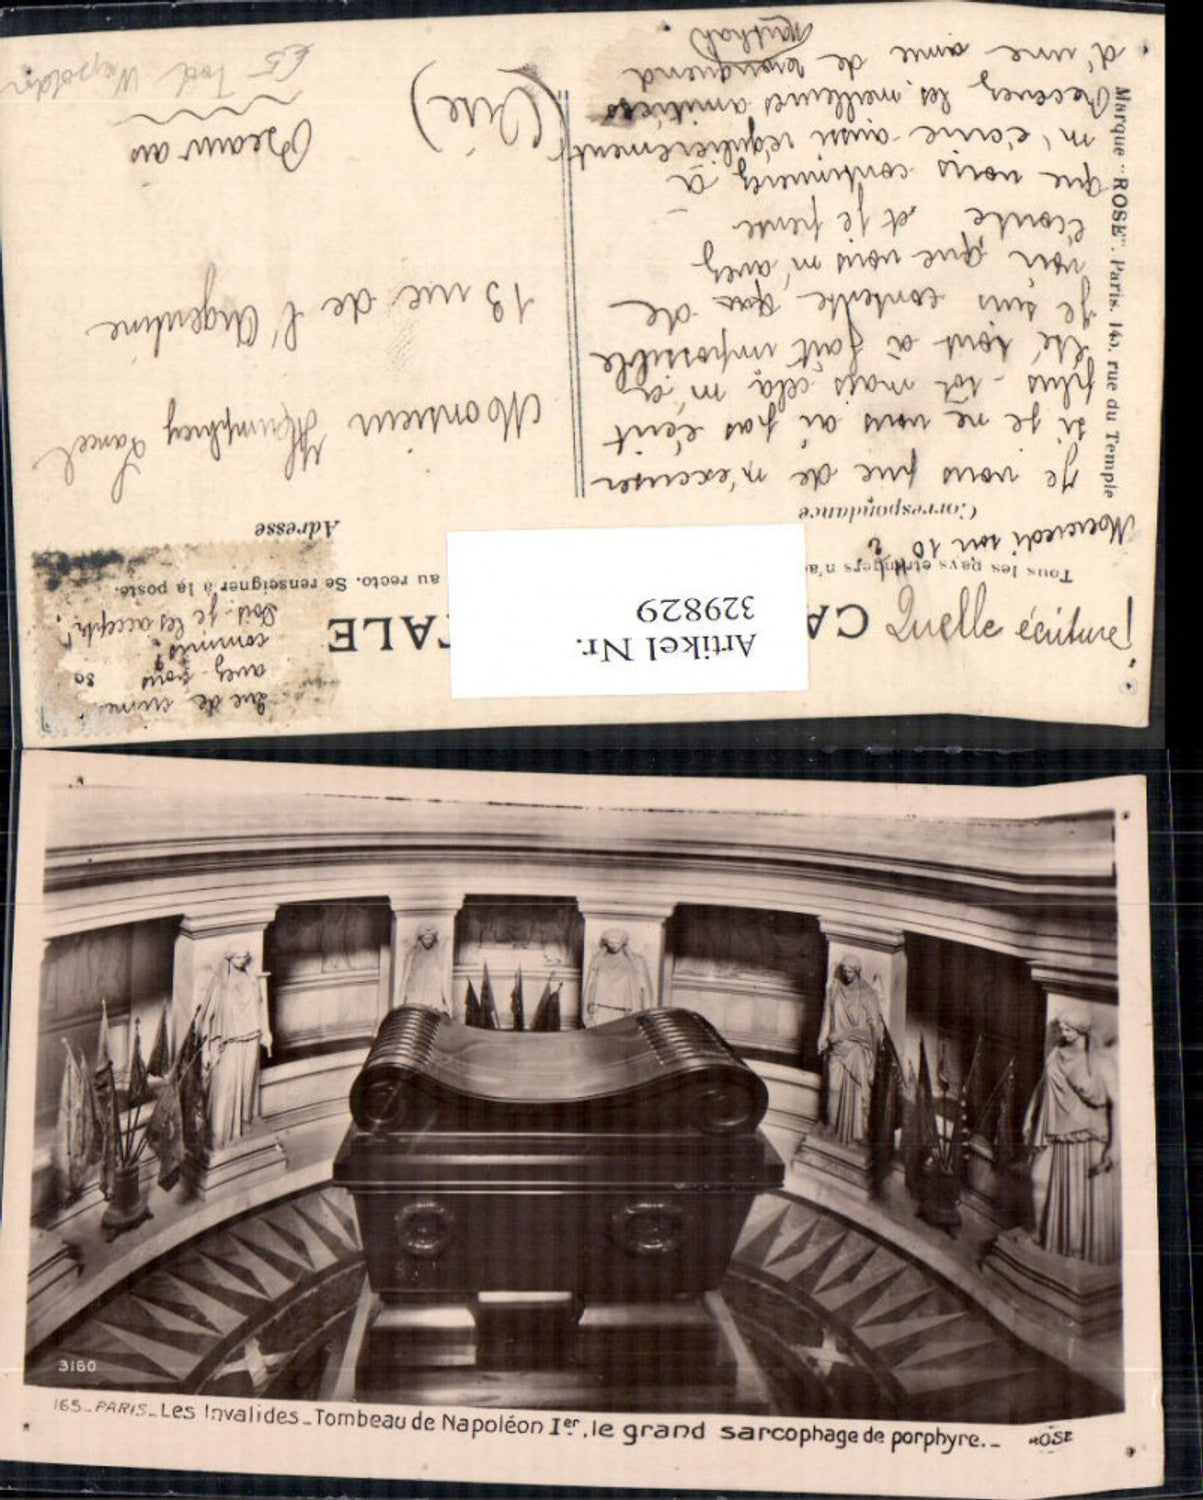 Quelle écriture!
CA
TALE
Tous les pays étrangers n'a
au recto. Se renseigner à la poste.
Correspondance
Adresse
Artikel Nr.
329829
Que de
avez vous
commis?
Dois-je les accepter?
80
Mercredi soir 10
Je vous prie de m'excuser
si je ne vous ai pas écrit
plus-tôt mais celà m'a
été tout à fait impossible
Je suis contente que de
voir que vous m'avez
écoute et je pense
que vous continuerez à
m'écrire aussi régulièrement
Recevez les meilleures amitiées
d'une amie de
Monsieur Humphrey
13 rue de l'Argentine
Beauvais
(Oise)
Marque "ROSE". Paris. 145. rue du Temple
3160
165_PARIS_Les Invalides_Tombeau de Napoléon Ier, le grand sarcophage de porphyre._ ROSE